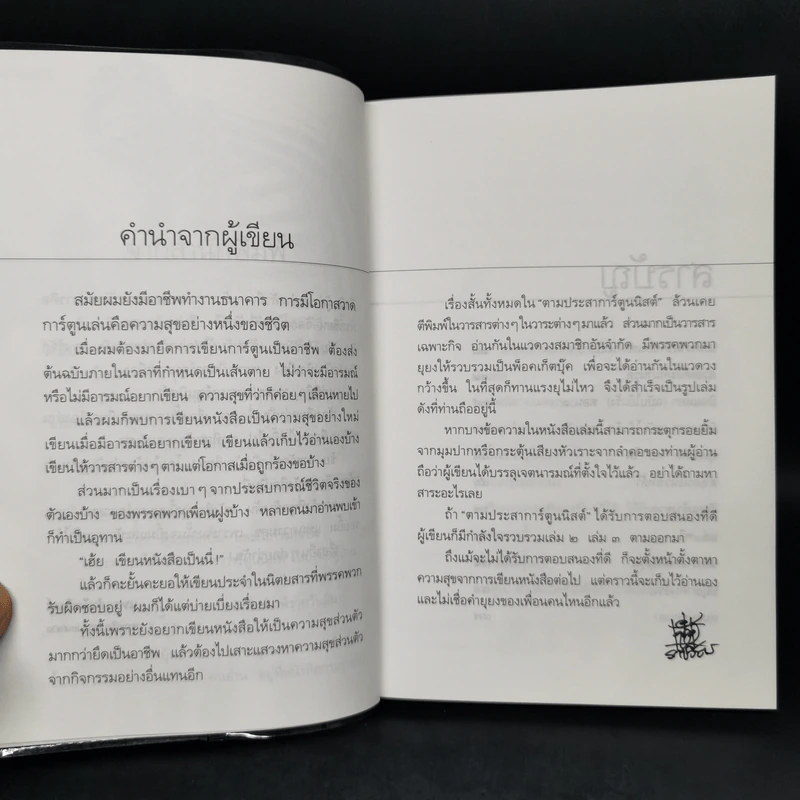 คำนำจากผู้เขียน
สมัยผมยังมีอาชีพทำงานธนาคาร การมีโอกาสวาด
การ์ตูนเล่นคือความสุขอย่างหนึ่งของชีวิต
เมื่อผมต้องมายึดการเขียนการ์ตูนเป็นอาชีพ ต้องส่ง
ต้นฉบับภายในเวลาที่กำหนดเป็นเส้นตาย ไม่ว่าจะมีอารมณ์
หรือไม่มีอารมณ์อยากเขียน ความสุขที่ว่าก็ค่อยๆ เลือนหายไป
แล้วผมก็พบการเขียนหนังสือเป็นความสุขอย่างใหม่
เขียนเมื่อมีอารมณ์อยากเขียน เขียนแล้วเก็บไว้อ่านเองบ้าง
เขียนให้วารสารต่างๆ ตามแต่โอกาสเมื่อถูกร้องขอบ้าง
ส่วนมากเป็นเรื่องเบาๆ จากประสบการณ์ชีวิตจริงของ
ตัวเองบ้าง ของพรรคพวกเพื่อนฝูงบ้าง หลายคนมาอ่านพบเข้า
ก็ทำเป็นอุทาน
“เฮ้ย เขียนหนังสือเป็นนี่!”
แล้วก็คะยั้นคะยอให้เขียนประจำในนิตยสารที่พรรคพวก
รับผิดชอบอยู่ ผมก็ได้แต่บ่ายเบี่ยงเรื่อยมา
ทั้งนี้เพราะยังอยากเขียนหนังสือให้เป็นความสุขส่วนตัว
มากกว่ายึดเป็นอาชีพ แล้วต้องไปเสาะแสวงหาความสุขส่วนตัว
จากกิจกรรมอย่างอื่นแทนอีก
เรื่องสั้นทั้งหมดใน “ตามประสาการ์ตูนนิสต์” ล้วนเคย
ตีพิมพ์ในวารสารต่างๆ ในวาระต่างๆ มาแล้ว ส่วนมากเป็นวารสาร
เฉพาะกิจ อ่านกันในแวดวงสมาชิกอันจำกัด มีพรรคพวกมา
ยุยงให้รวบรวมเป็นพ็อคเก็ตบุ๊ค เพื่อจะได้อ่านกันในแวดวง
กว้างขึ้น ในที่สุดก็ทานแรงยุไม่ไหว จึงได้สำเร็จเป็นรูปเล่ม
ดังที่ท่านถืออยู่นี้
หากบางข้อความในหนังสือเล่มนี้สามารถกระตุกรอยยิ้ม
จากมุมปากหรือกระตุ้นเสียงหัวเราะจากลำคอของท่านผู้อ่าน
ถือว่าผู้เขียนได้บรรลุเจตนารมณ์ที่ตั้งใจไว้แล้ว อย่าได้ถามหา
สาระอะไรเลย
ถ้า “ตามประสาการ์ตูนนิสต์” ได้รับการตอบสนองที่ดี
ผู้เขียนก็มีกำลังใจรวบรวมเล่ม ๒ เล่ม ๓ ตามออกมา
ถึงแม้จะไม่ได้รับการตอบสนองที่ดี ก็จะตั้งหน้าตั้งตาหา
ความสุขจากการเขียนหนังสือต่อไป แต่คราวนี้จะเก็บไว้อ่านเอง
และไม่เชื่อคำยุยงของเพื่อนคนไหนอีกแล้ว